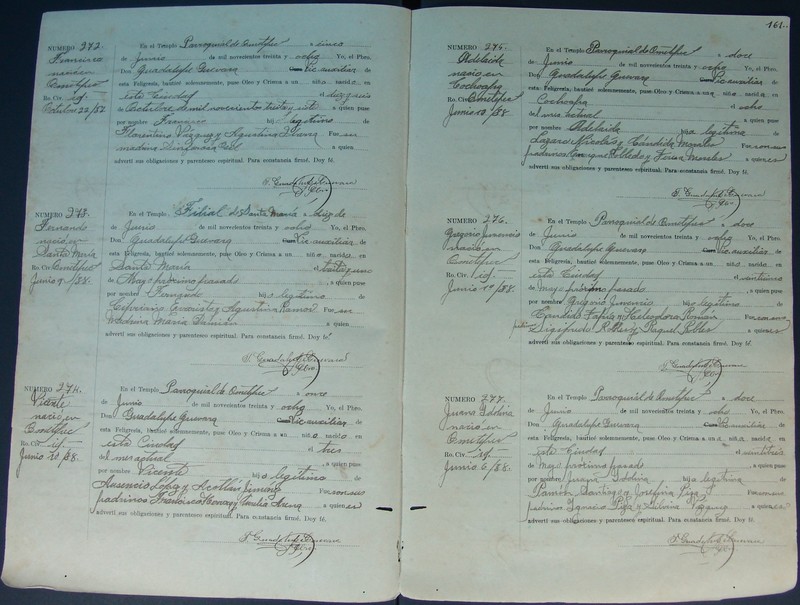 NUMERO 272.
Francisco
nació en
Ometepec
Ro. Civ. id.
Octubre 22/37
En el Templo Parroquial de Ometepec a cinco
de Junio de mil novecientos treinta y ocho Yo, el Pbro.
Don Guadalupe Guevara Vic auxiliar de
esta Feligresía, bauticé solemnemente, puse Oleo y Crisma a un niño nacido en
esta Ciudad el
de Octubre de mil novecientos treinta y siete a quien puse
por nombre Francisco hijo legítimo de
Florentino Vázquez y Agustina Fue su
madrina a quien
advertí sus obligaciones y parentesco espiritual. Para constancia firmé. Doy fé.
J. Guadalupe Guevara
Pbro
NUMERO 273.
Fernando
nació en
Santa María
Ro. Civ. Ometepec
Junio 9/38.
En el Templo Filial de Santa María a diez de
de Junio de mil novecientos treinta y ocho Yo, el Pbro.
Don Guadalupe Guevara Vic auxiliar de
esta Feligresía, bauticé solemnemente, puse Oleo y Crisma a un niño nacido en
Santa María el treinta y uno
de Mayo próximo pasado a quien puse
por nombre Fernando hijo legítimo de
Cipriano Evaristo y Agustina Ramos Fue su
madrina María Damián a quien
advertí sus obligaciones y parentesco espiritual. Para constancia firmé. Doy fé.
J. Guadalupe Guevara
Pbro
NUMERO 274.
Vicente
nació en
Ometepec
Ro. Civ. id.
Junio 10/38.
En el Templo Parroquial de Ometepec a once
de Junio de mil novecientos treinta y ocho Yo, el Pbro.
Don Guadalupe Guevara Vic auxiliar de
esta Feligresía, bauticé solemnemente, puse Oleo y Crisma a un niño nacido en
esta Ciudad el tres
del mes actual a quien puse
por nombre Vicente hijo legítimo de
Ausencio López y Jiménez Fueron sus
padrinos Francisco y Emilia a quienes
advertí sus obligaciones y parentesco espiritual. Para constancia firmé. Doy fé.
J. Guadalupe Guevara
Pbro
161.
NUMERO 275.
Adelaida
nació en
Cochoapa
Ro. Civ. Ometepec
Junio 10/38
En el Templo Parroquial de Ometepec a doce
de Junio de mil novecientos treinta y ocho Yo, el Pbro.
Don Guadalupe Guevara Vic auxiliar de
esta Feligresía, bauticé solemnemente, puse Oleo y Crisma a una niña nacida en
Cochoapa el ocho
del mes actual a quien puse
por nombre Adelaida hija legítima de
Lázaro Nicolás y Cándida Morales Fueron sus
padrinos Enrique Robledo y Teresa Morales a quienes
advertí sus obligaciones y parentesco espiritual. Para constancia firmé. Doy fé.
J. Guadalupe Guevara
Pbro
NUMERO 276.
Gregorio Inocencio
nació en
Ometepec
Ro. Civ. id.
Junio 10/38.
En el Templo Parroquial de Ometepec a doce
de Junio de mil novecientos treinta y ocho Yo, el Pbro.
Don Guadalupe Guevara Vic auxiliar de
esta Feligresía, bauticé solemnemente, puse Oleo y Crisma a un niño nacido en
esta Ciudad el
de Mayo próximo pasado a quien puse
por nombre Gregorio Inocencio hijo legítimo de
Cándido Tapia y Heleodora Román Fueron sus
padrinos Sigifredo Robles y Raquel Robles a quienes
advertí sus obligaciones y parentesco espiritual. Para constancia firmé. Doy fé.
J. Guadalupe Guevara
Pbro
NUMERO 277.
Juana
nació en
Ometepec
Ro. Civ. id.
Junio 6/38.
En el Templo Parroquial de Ometepec a doce
de Junio de mil novecientos treinta y ocho Yo, el Pbro.
Don Guadalupe Guevara Vic auxiliar de
esta Feligresía, bauticé solemnemente, puse Oleo y Crisma a una niña nacida en
esta Ciudad el
de Mayo próximo pasado a quien puse
por nombre Juana hija legítima de
Ramón Santiago y Josefina Fueron sus
padrinos Ignacio y Vázquez a quienes
advertí sus obligaciones y parentesco espiritual. Para constancia firmé. Doy fé.
J. Guadalupe Guevara
Pbro